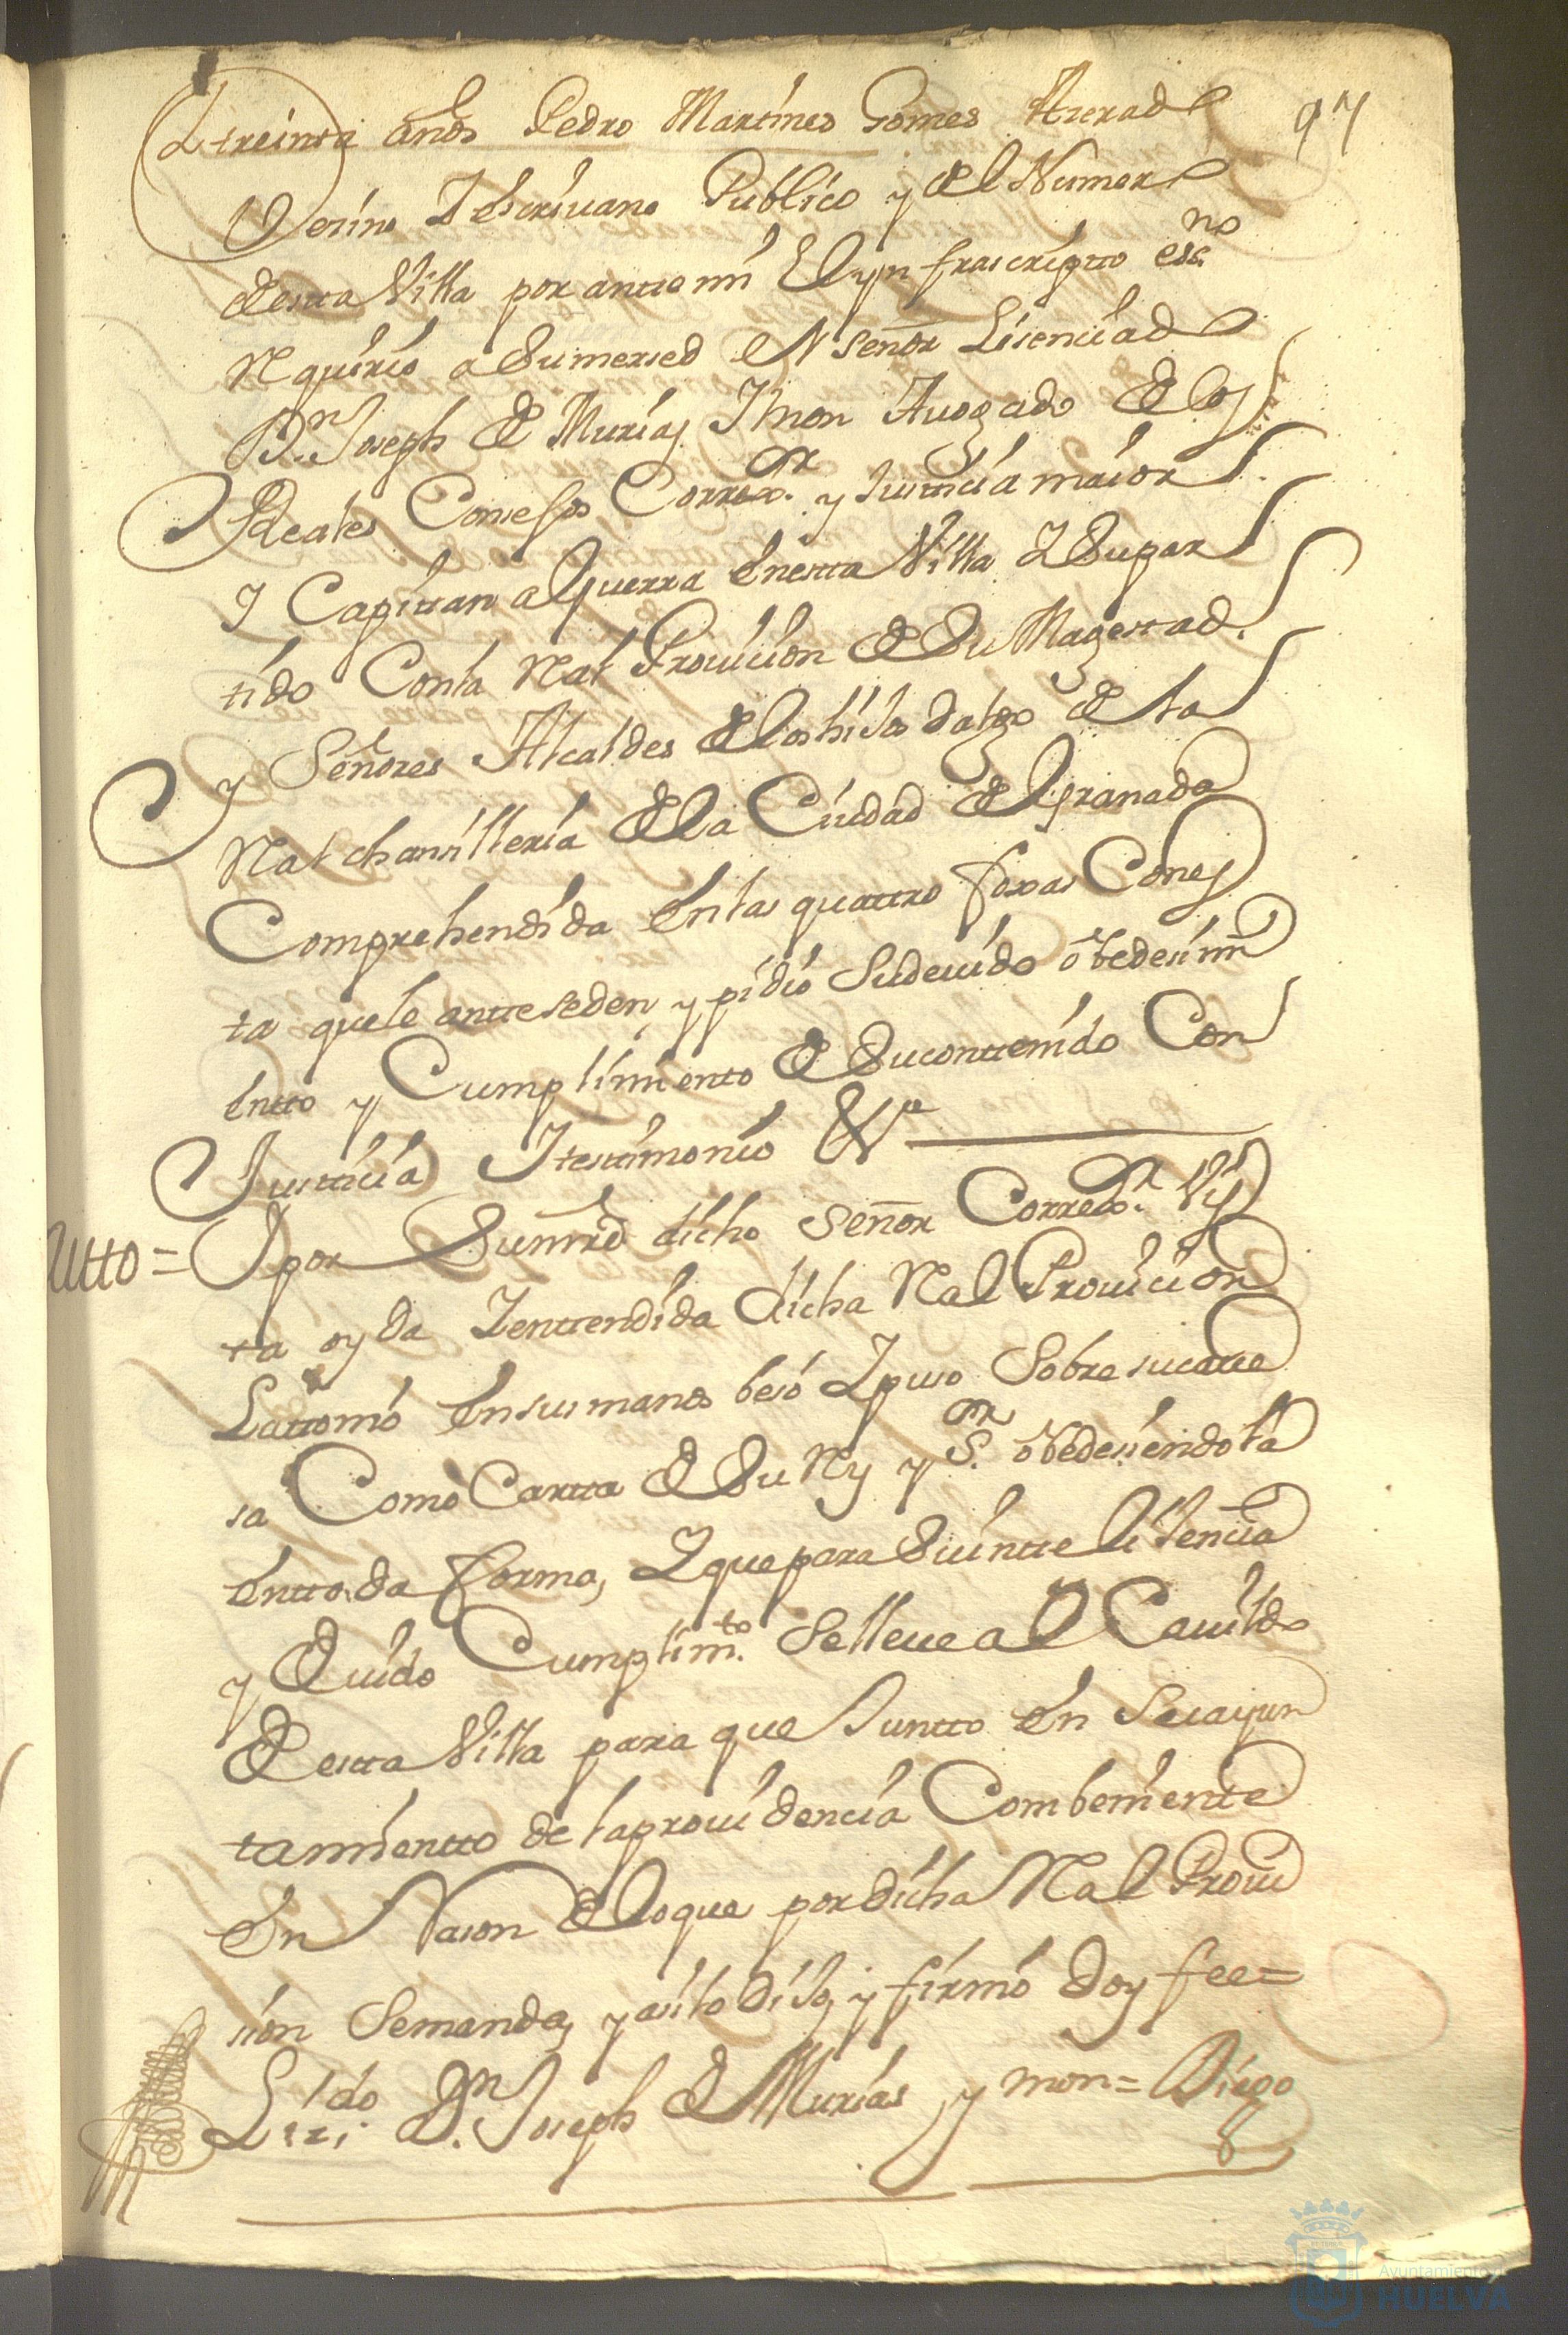 97
Y treinta años Pedro Martines Gomes Azerado
Vesino Y escriuano Publico y del Numero
desta Villa por ante mi El ynfrascripto essno
Rquirio a Su mersed el señor Lisenciado
Dn Joseph de Murias Ymon Auogado de los
Reales Consejos Corregor y Justicia maior
Y Capitan a Guerra en esta Villa Y Supar
tido Con la Ral Prouicion de Su Magestad
y Señores Alcaldes de los hijos dalgo de la
Ral chansilleria de la Ciudad de Granada
Comprehendida en las quattro foxas Con es
ta que le antteseden y pidio Su deuido obedesimi
entto y Cumplimiento de Su conttenido Con
Justicia Y testimonio &a
Autto = Y por Su mrd dicho señor Corregor Vis
ta oyda Y enttendida dicha Ral Prouicion
La ttomó en sus manos besó Y puso Sobre su caue
sa Como Cartta de Su Rey y Sor obedesiendola
en ttoda forma, Y que para Su inttelisencia
y deuido Cumplimto Se lleue al Cauildo
desta Villa para que Juntto en Su ayun
tamientto de la prouidencia Combeniente
en Rason de lo que por dicha Ral Proui
sion Se manda, y asi lo dijo, y firmó doy fee =
Lizdo Dn Joseph de Murias y mon = Diego